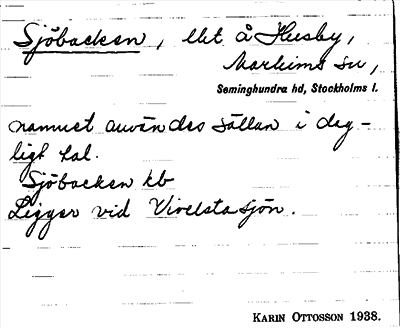 Sjöbacken, lht å Husby,
Markims sn,
Seminghundra hd, Stockholms l.
namnet användes sällan i dag-
ligt tal.
Sjöbacken kb
Ligger vid Vivelstasjön.
KARIN OTTOSSON 1938.